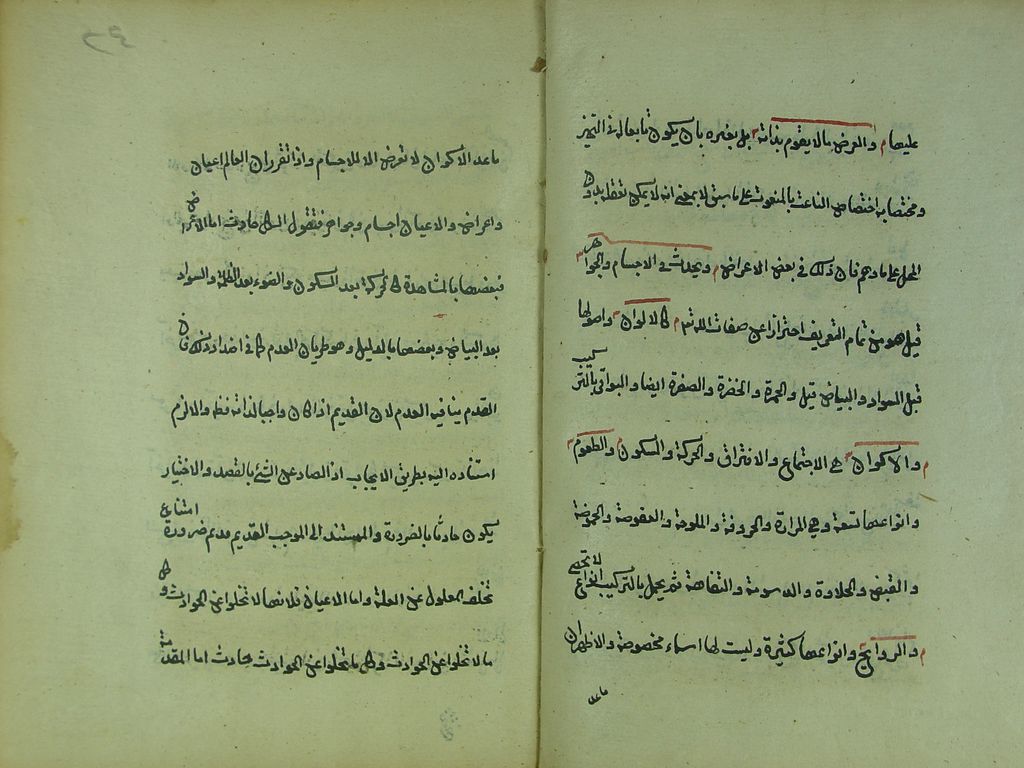 عليها م والعرض ما لا يقوم بذاته م بل بغيره بان يكون تابعا له في التحيز
ومختصا به اختصاص الناعت بالمنعوت على ما سبق لا بمعنى انه لا يمكن تعقله بدون
المحل على ما وهم فان ذلك في بعض الاعراض م ويحدث في الاجسام والجواهر م
قيل هو من تمام التعريف احترازا عن صفات الله تع م كالالوان م واصولها
قيل السواد والبياض قيل والحمرة والخضرة والصفرة ايضا والبواقي بالتركيب
م والاكوان م هي الاجتماع والافتراق والحركة والسكون م والطعوم م
وانواعها تسعة وهي المرارة والحرافة والملوحة والعفوصة والحموضة
والقبض والحلاوة والدسومة والتفاهة ثم يحصل بالتركيب انواع لا تحصى
م والروايح م وانواعها كثيرة وليست لها اسماء مخصوصة والاظهر ان
ما عد
٢٤
ما عدا الاكوان لا تعرض الا للاجسام واذا تقرر ان العالم اعيان
واعراض والاعيان اجسام وجواهر فنقول الكل حادث اما الاعراض
فبعضها بالمشاهدة كالحركة بعد السكون والضوء بعد الظلمة والسواد
بعد البياض وبعضها بالدليل وهو طريان العدم كما في اضداد ذلك فان
القدم ينافي العدم لان القديم اذا كان واجبا لذاته فظ والا لزم
استناده اليه بطريق الايجاب اذ الصادر عن الشئ بالقصد والاختيار
يكون حادثا بالضرورة والمستند الى الموجب القديم قديم ضرورة امتناع
تخلف المعلول عن العلة واما الاعيان فلانها لا تخلوا عن الحوادث وكل
ما لا تخلوا عن الحوادث وكل ما يخلوا عن الحوادث حادث اما المقدمة